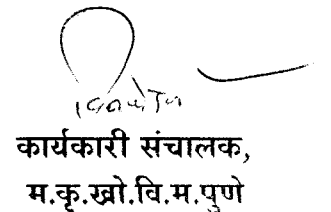 कार्यकारी संचालक,
म.कृ.खो.वि.म.पुणे